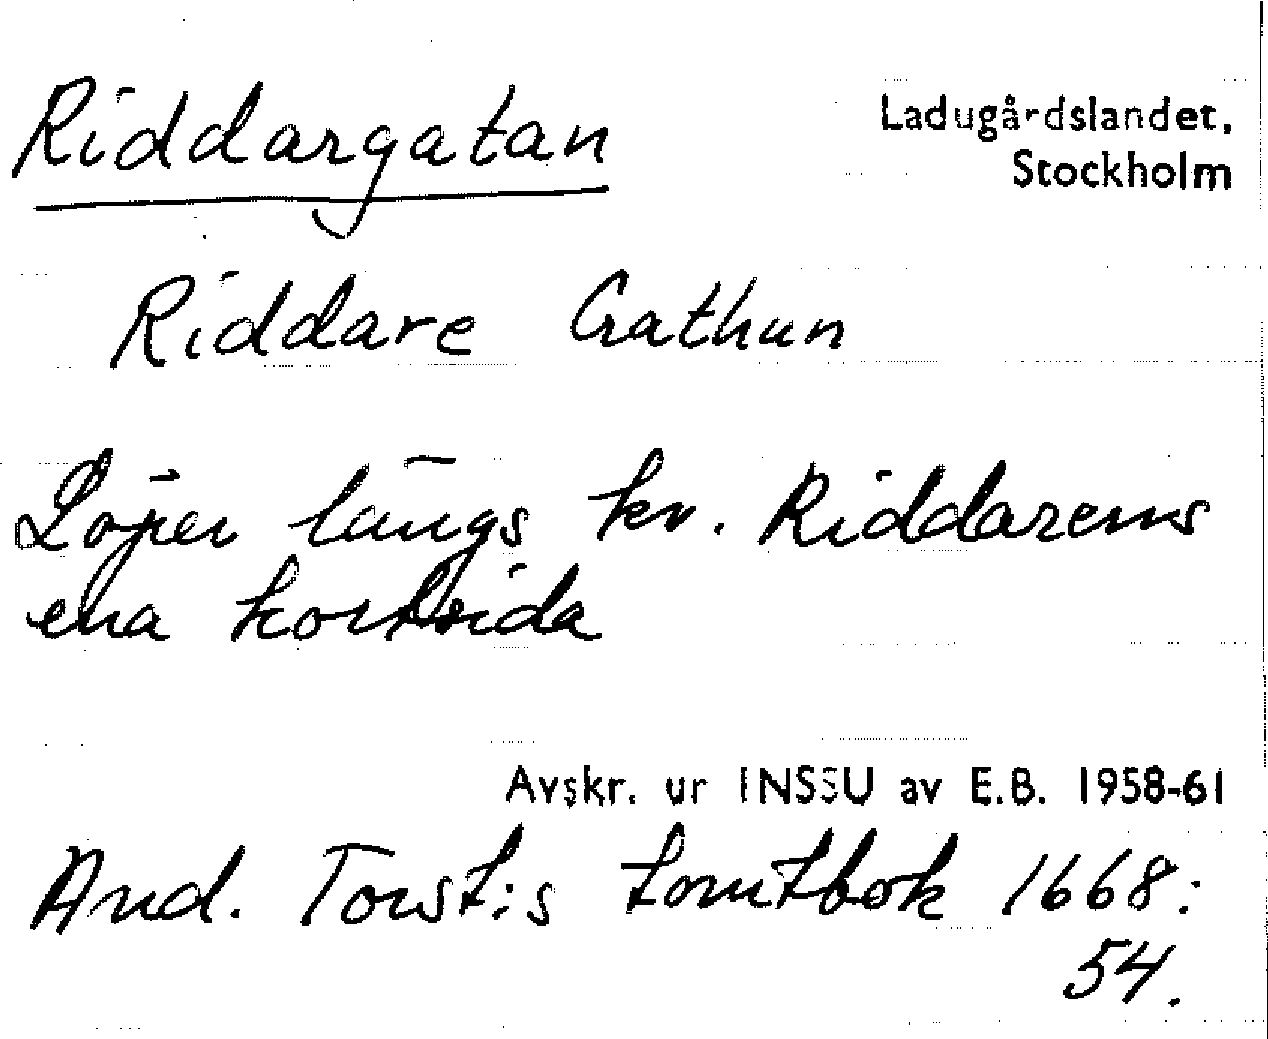 Riddargatan
Ladugårdslandet,
Stockholm
Riddare Gathun
Löper längs kv. Riddarens
ena kortsida
Avskr. ur INSSU av E.B. 1958-61
And. Torst:s tomtbok 1668:
54.